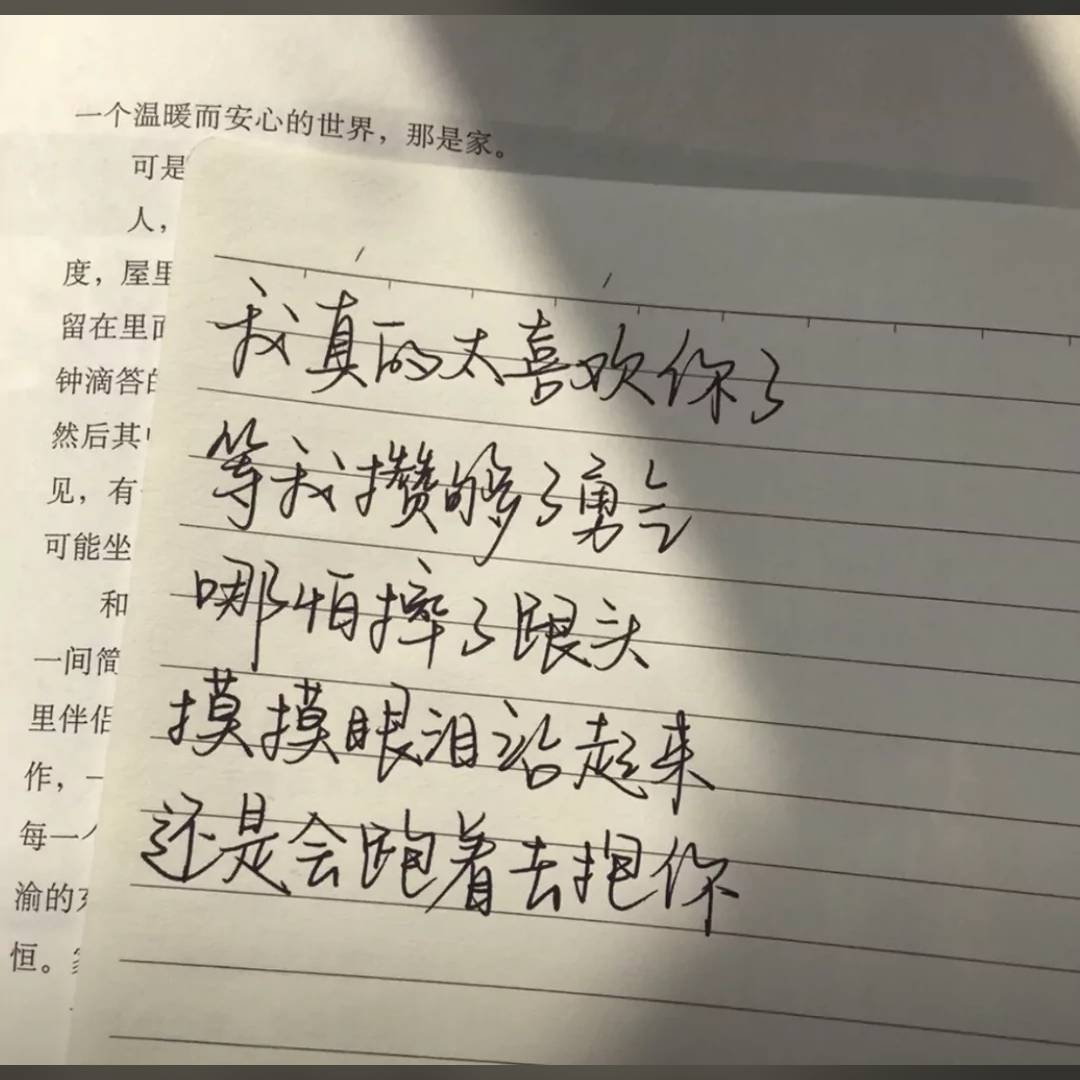 一个温暖而安心的世界，那是家。
可是
人，
度，屋里
留在里面
钟滴答的
然后其中
见，有
可能坐
和
一间简
里伴侣
作，一
每一个
渝的
恒。家
我真的太喜欢你了
等我攒够了勇气
哪怕摔了跟头
摸摸眼泪站起来
还是会跑着去抱你